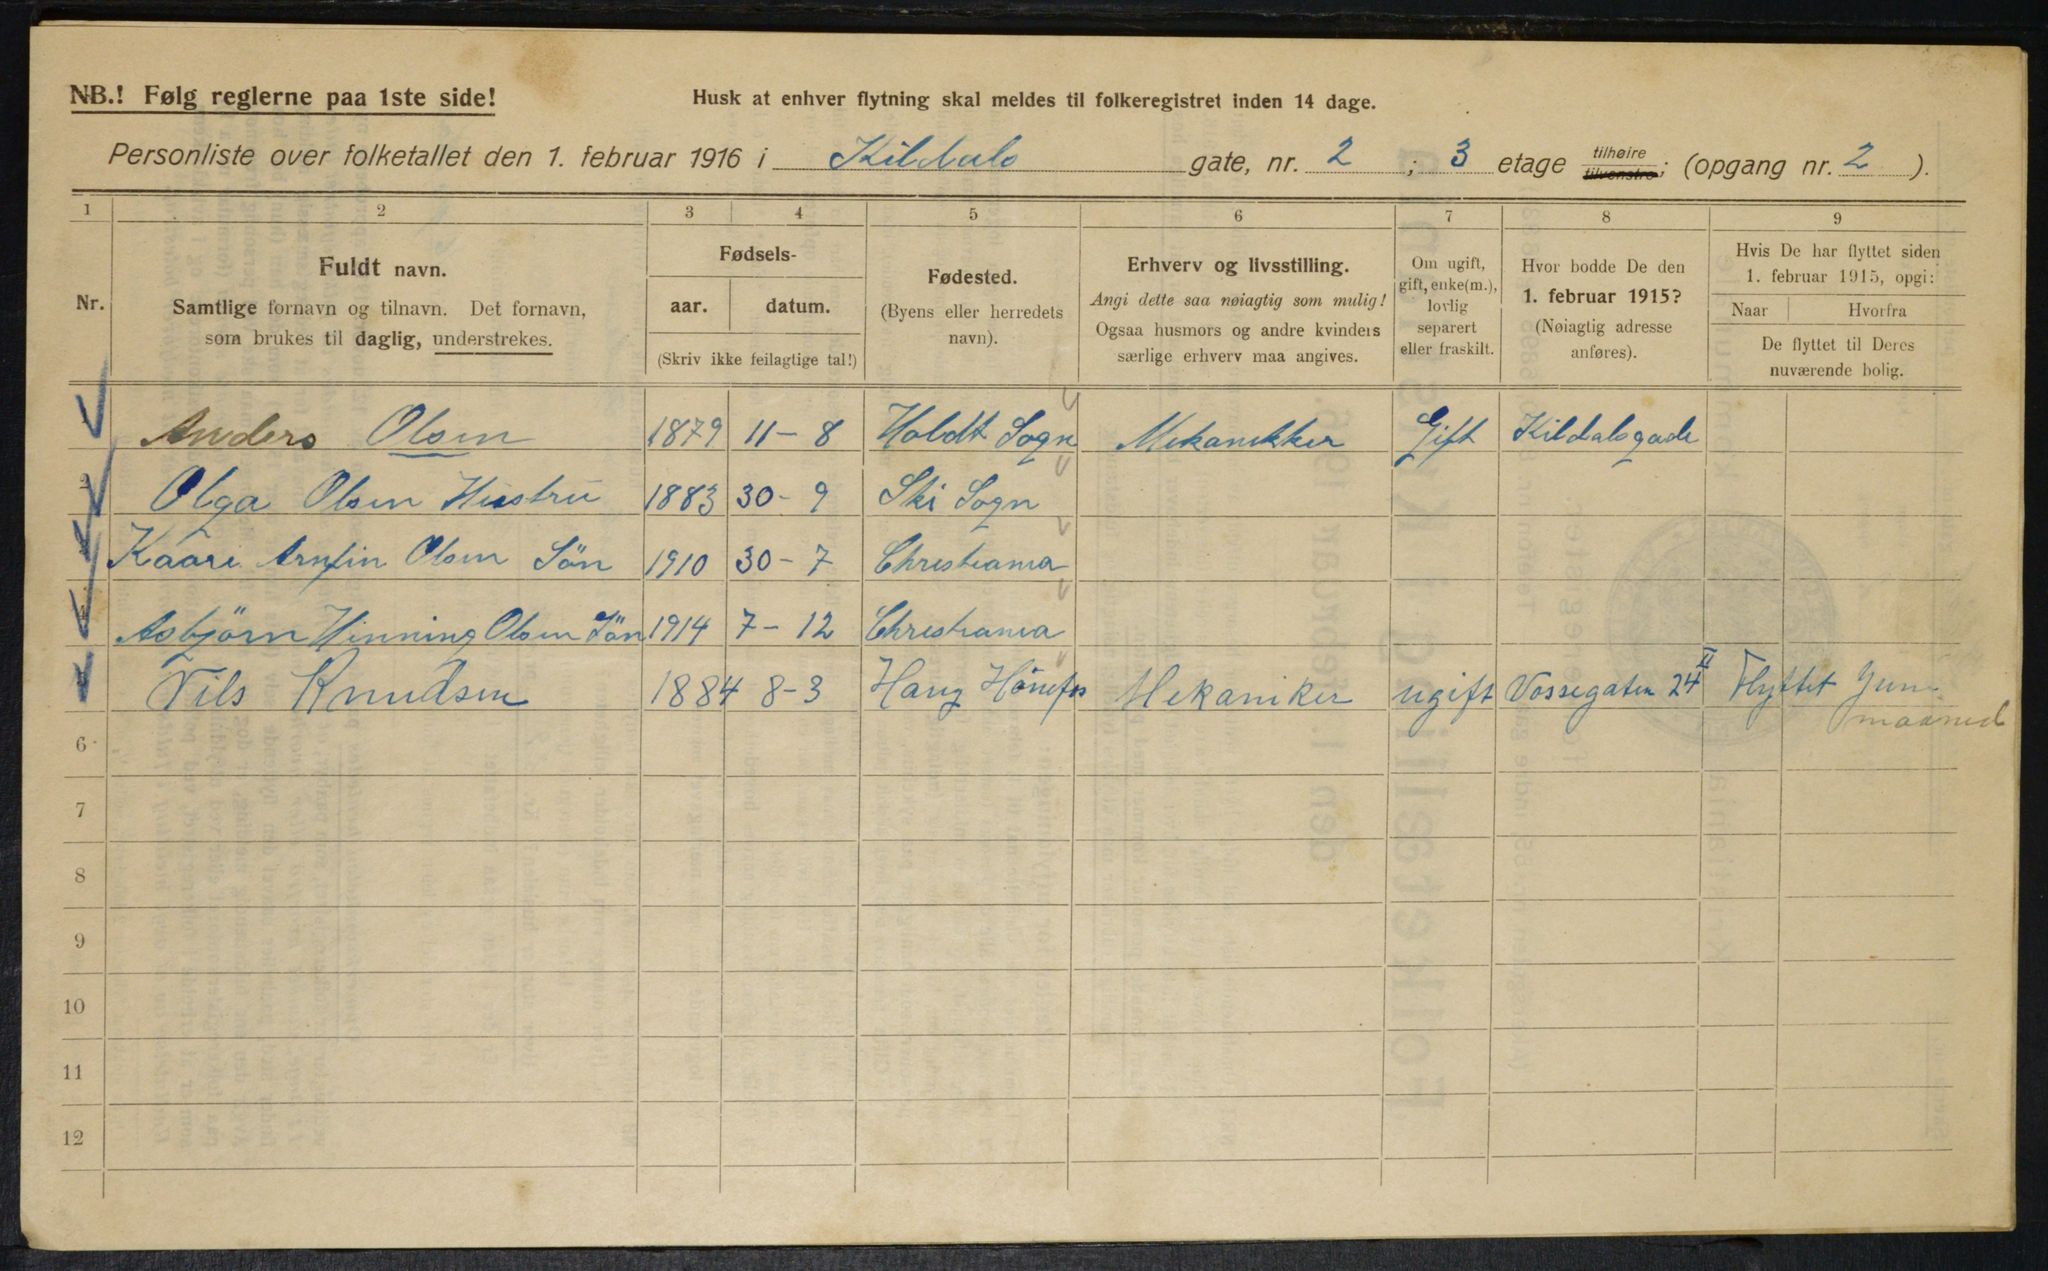 NB.! Følg reglerne paa 1ste side!
Husk at enhver flytning skal meldes til folkeregistret inden 14 dage.
Personliste over folketallet den 1. februar 1916 i Kildals gate, nr. 2 ; 3 etage tilhøire tilvenstre; (opgang nr. 2 ).
1 2 3 4 5 6 7 8 9
Nr.
Fuldt navn.
Samtlige fornavn og tilnavn. Det fornavn,
som brukes til daglig, understrekes.
Fødsels-
aar. datum.
(Skriv ikke feilagtige tal!)
Fødested.
(Byens eller herredets
navn).
Erhverv og livsstilling.
Angi dette saa nøiagtig som mulig!
Ogsaa husmors og andre kvinders
særlige erhverv maa angives.
Om ugift,
gift, enke(m.),
lovlig
separert
eller fraskilt.
Hvor bodde De den
1. februar 1915?
(Nøiagtig adresse
anføres).
Hvis De har flyttet siden
1. februar 1915, opgi:
Naar Hvorfra
De flyttet til Deres
nuværende bolig.
Anders Olsen 1879 11-8 Holdt Sogn Mekanikker Gift Kildalsgade
2 Olga Olsen Hustru 1883 30-9 Ski Sogn
Kaare Arnfin Olsen Sön 1910 30-7 Christiania
Asbjörn Hinning Olsen Sön 1914 7-12 Christiania
Nils Knudsen 1884 8-3 Haug Hönefos Mekaniker ugift Vossegaten 24 II Flyttet Juni
maaned
6
7
8
9
10
11
12